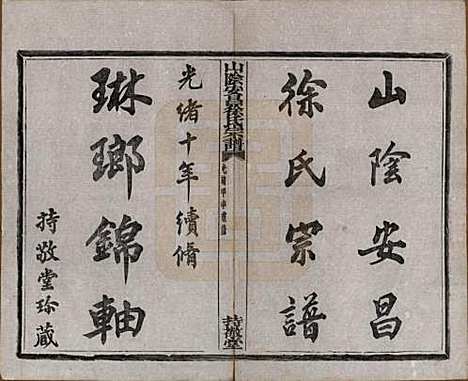 山陰安昌
徐氏宗譜
山陰安昌徐氏宗譜
持敬堂
光緒十年續脩
琳瑯錦軸
持敬堂珍藏